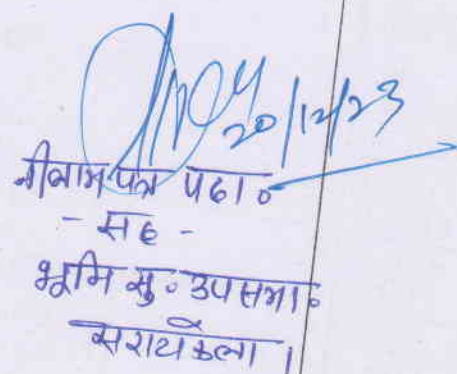 20/12/23
नीलाम पत्र पदा०
- सह -
भूमि सु० उपसमा०
सरायकेला।